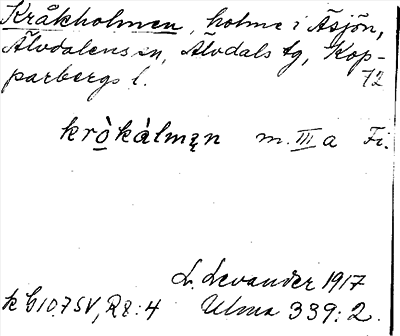 Kråkholmen, holme i Åsjön,
Älvdalens sn, Älvdals tg, Kop-
parbergs l. 72
kròkàlmen m. III a Fi.
L. Levander 1917
k G1075V, R2:4 Ulma 339:2.